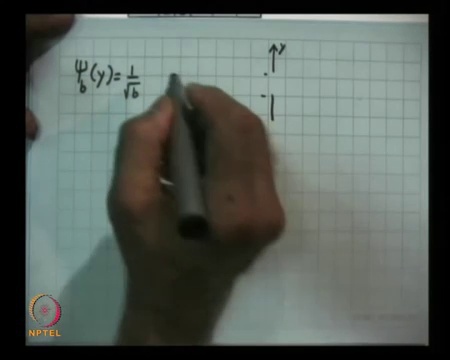 ψ_b(y) = 1/√b
y
NPTEL